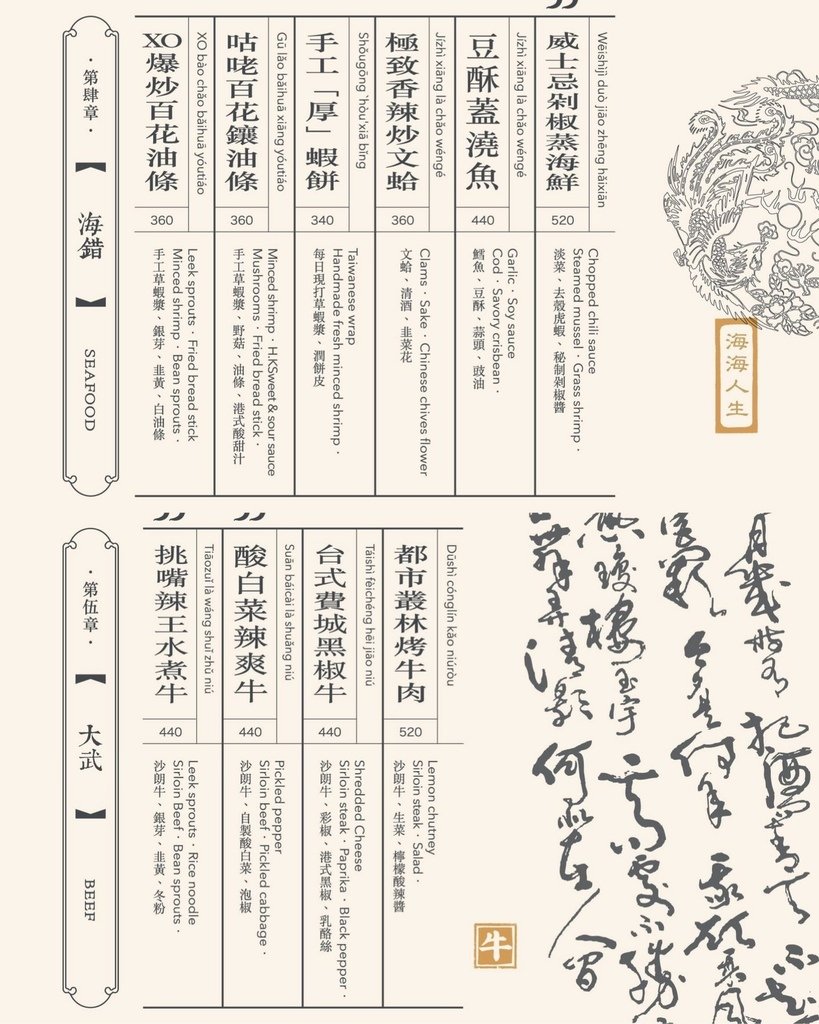 ·第肆章·
【海錯】
SEAFOOD
XO爆炒百花油條
XO bào chǎo bǎihuā yóutiáo
360
手工草蝦漿、銀芽、韭黃、白油條
Minced shrimp · Bean sprouts ·
Leek sprouts · Fried bread stick
咕咾百花鑲油條
Gū lǎo bǎihuā xiāng yóutiáo
360
手工草蝦漿、野菇、油條、港式酸甜汁
Mushrooms · Fried bread stick ·
Minced shrimp · H.KSweet & sour sauce
手工「厚」蝦餅
Shǒugōng 'hòu'xiā bǐng
340
每日現打草蝦漿、潤餅皮
Handmade fresh minced shrimp ·
Taiwanese wrap
極致香辣炒文蛤
Jízhì xiāng là chǎo wéngé
360
文蛤、清酒、韭菜花
Clams · Sake · Chinese chives flower
豆酥蓋澆魚
Jízhì xiāng là chǎo wéngé
440
鱈魚、豆酥、蒜頭、豉油
Cod · Savory crisbean ·
Garlic · Soy sauce
威士忌剁椒蒸海鮮
Wēishìjì duò jiāo zhēng hǎixiān
520
淡菜、去殼虎蝦、秘制剁椒醬
Steamed mussel · Grass shrimp ·
Chopped chili sauce
海海人生
·第伍章·
【大武】
BEEF
挑嘴辣王水煮牛
Tiāozuǐ là wáng shuǐ zhǔ niú
440
沙朗牛、銀芽、韭黃、冬粉
Sirloin Beef · Bean sprouts ·
Leek sprouts · Rice noodle
酸白菜辣爽牛
Suān báicài là shuǎng niú
440
沙朗牛、自製酸白菜、泡椒
Sirloin beef · Pickled cabbage ·
Pickled pepper
台式費城黑椒牛
Táishì fèichéng hēi jiāo niú
440
沙朗牛、彩椒、港式黑椒、乳酪絲
Sirloin steak · Paprika · Black pepper ·
Shredded Cheese
都市叢林烤牛肉
Dūshì cónglín kǎo niúròu
520
沙朗牛、生菜、檸檬酸辣醬
Sirloin steak · Salad ·
Lemon chutney
牛